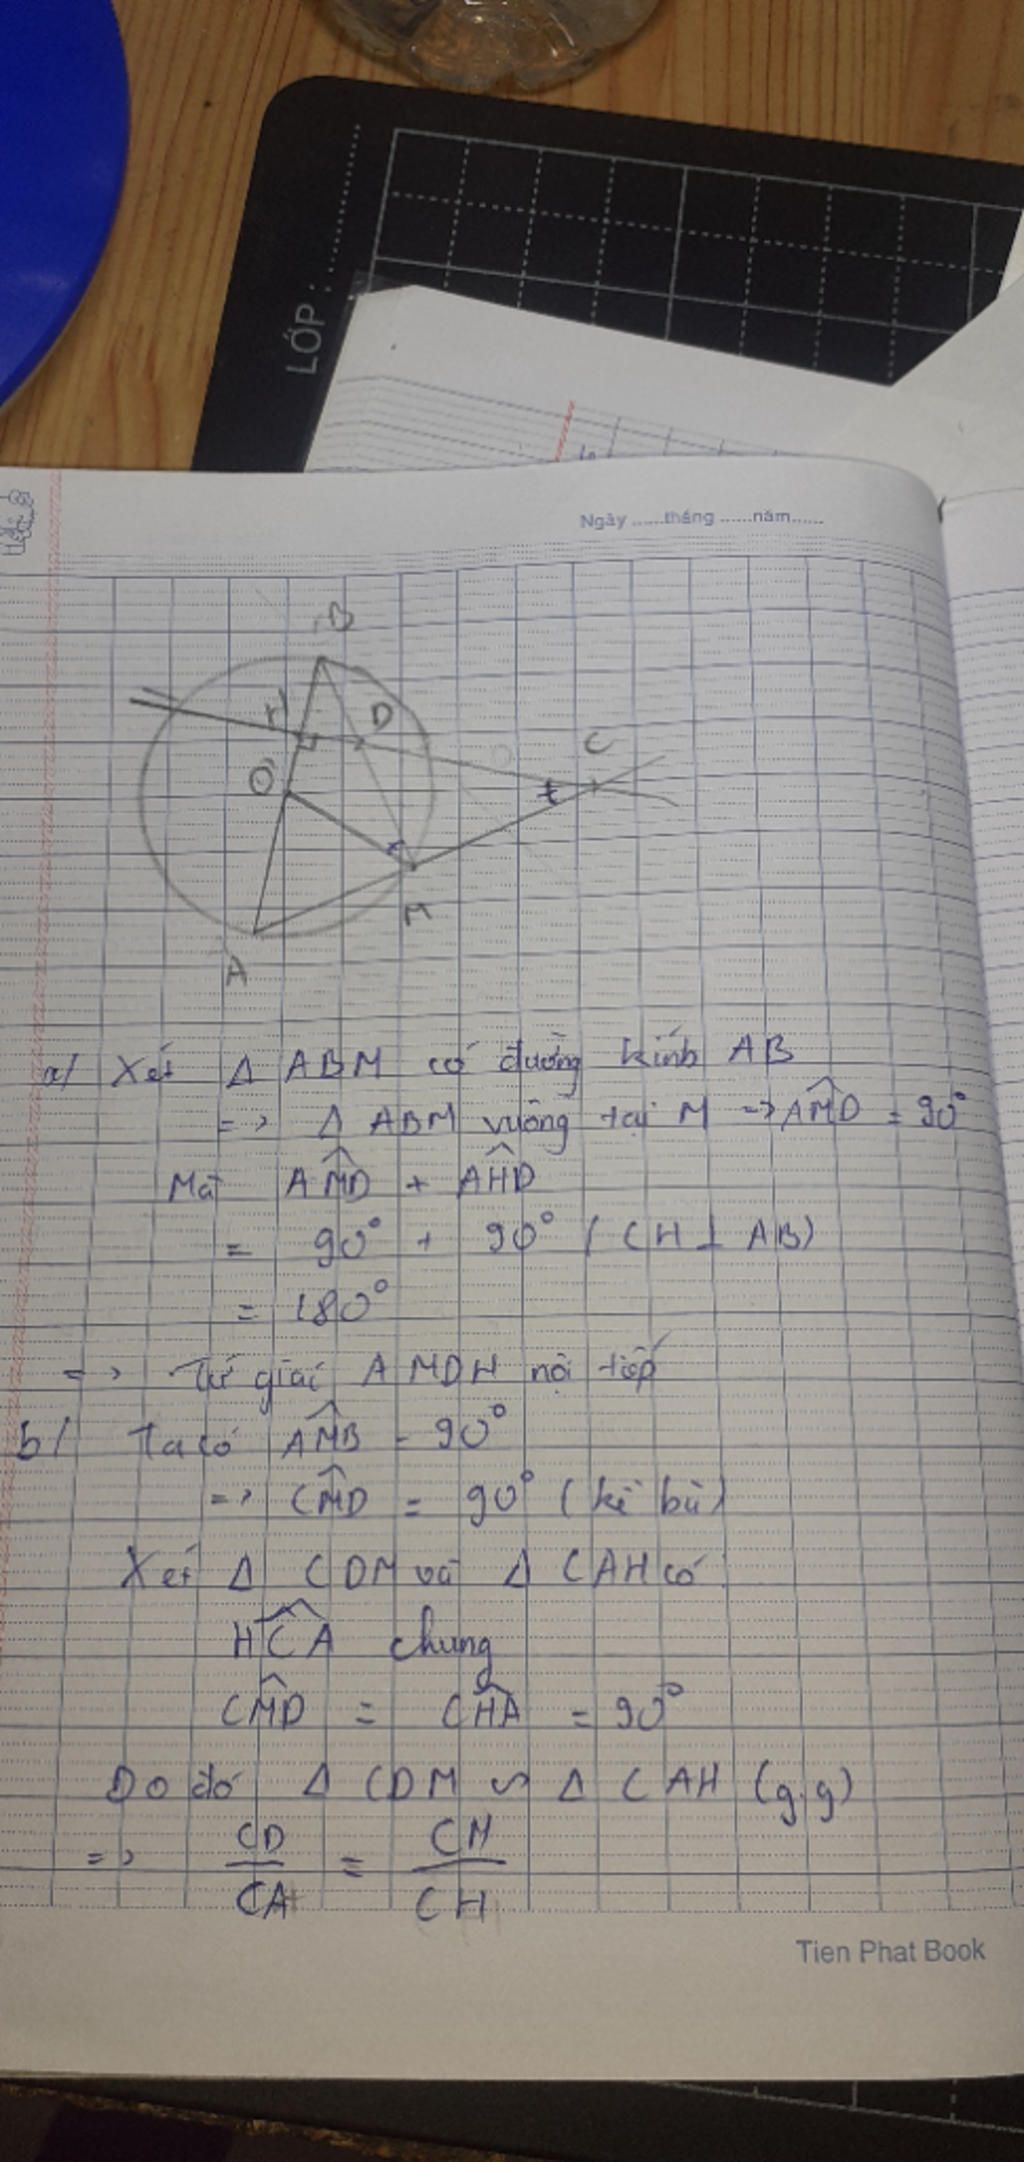 LỚP :
Ngày ......tháng ......năm......
B
H
D
C
O
M
A
a/ Xét Δ ABM có đường kính AB
=> Δ ABM vuông tại M => AMD = 90°
Mà AMD + AHD
= 90° + 90° ( CH ⊥ AB)
= 180°
=> Tứ giác AMDH nội tiếp
b/ Ta có AMB = 90°
=> CMD = 90° ( kề bù)
Xét Δ CDM và Δ CAH có
HCA chung
CMD = CHA = 90°
Do đó Δ CDM ∽ Δ CAH (g.g)
=> CD/CA = CM/CH
Tien Phat Book